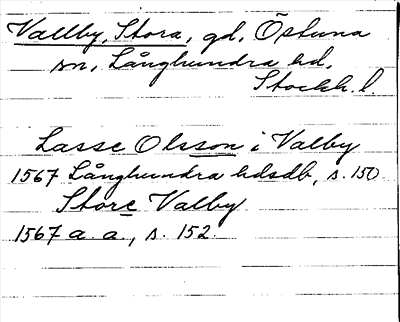 Vallby, Stora, gd, Östuna
sn, Långhundra hd,
Stockh. l.
Lasse Olsson i Valby
1567 Långhundra hdsdb, s. 150
Store Valby
1567 a. a., s. 152